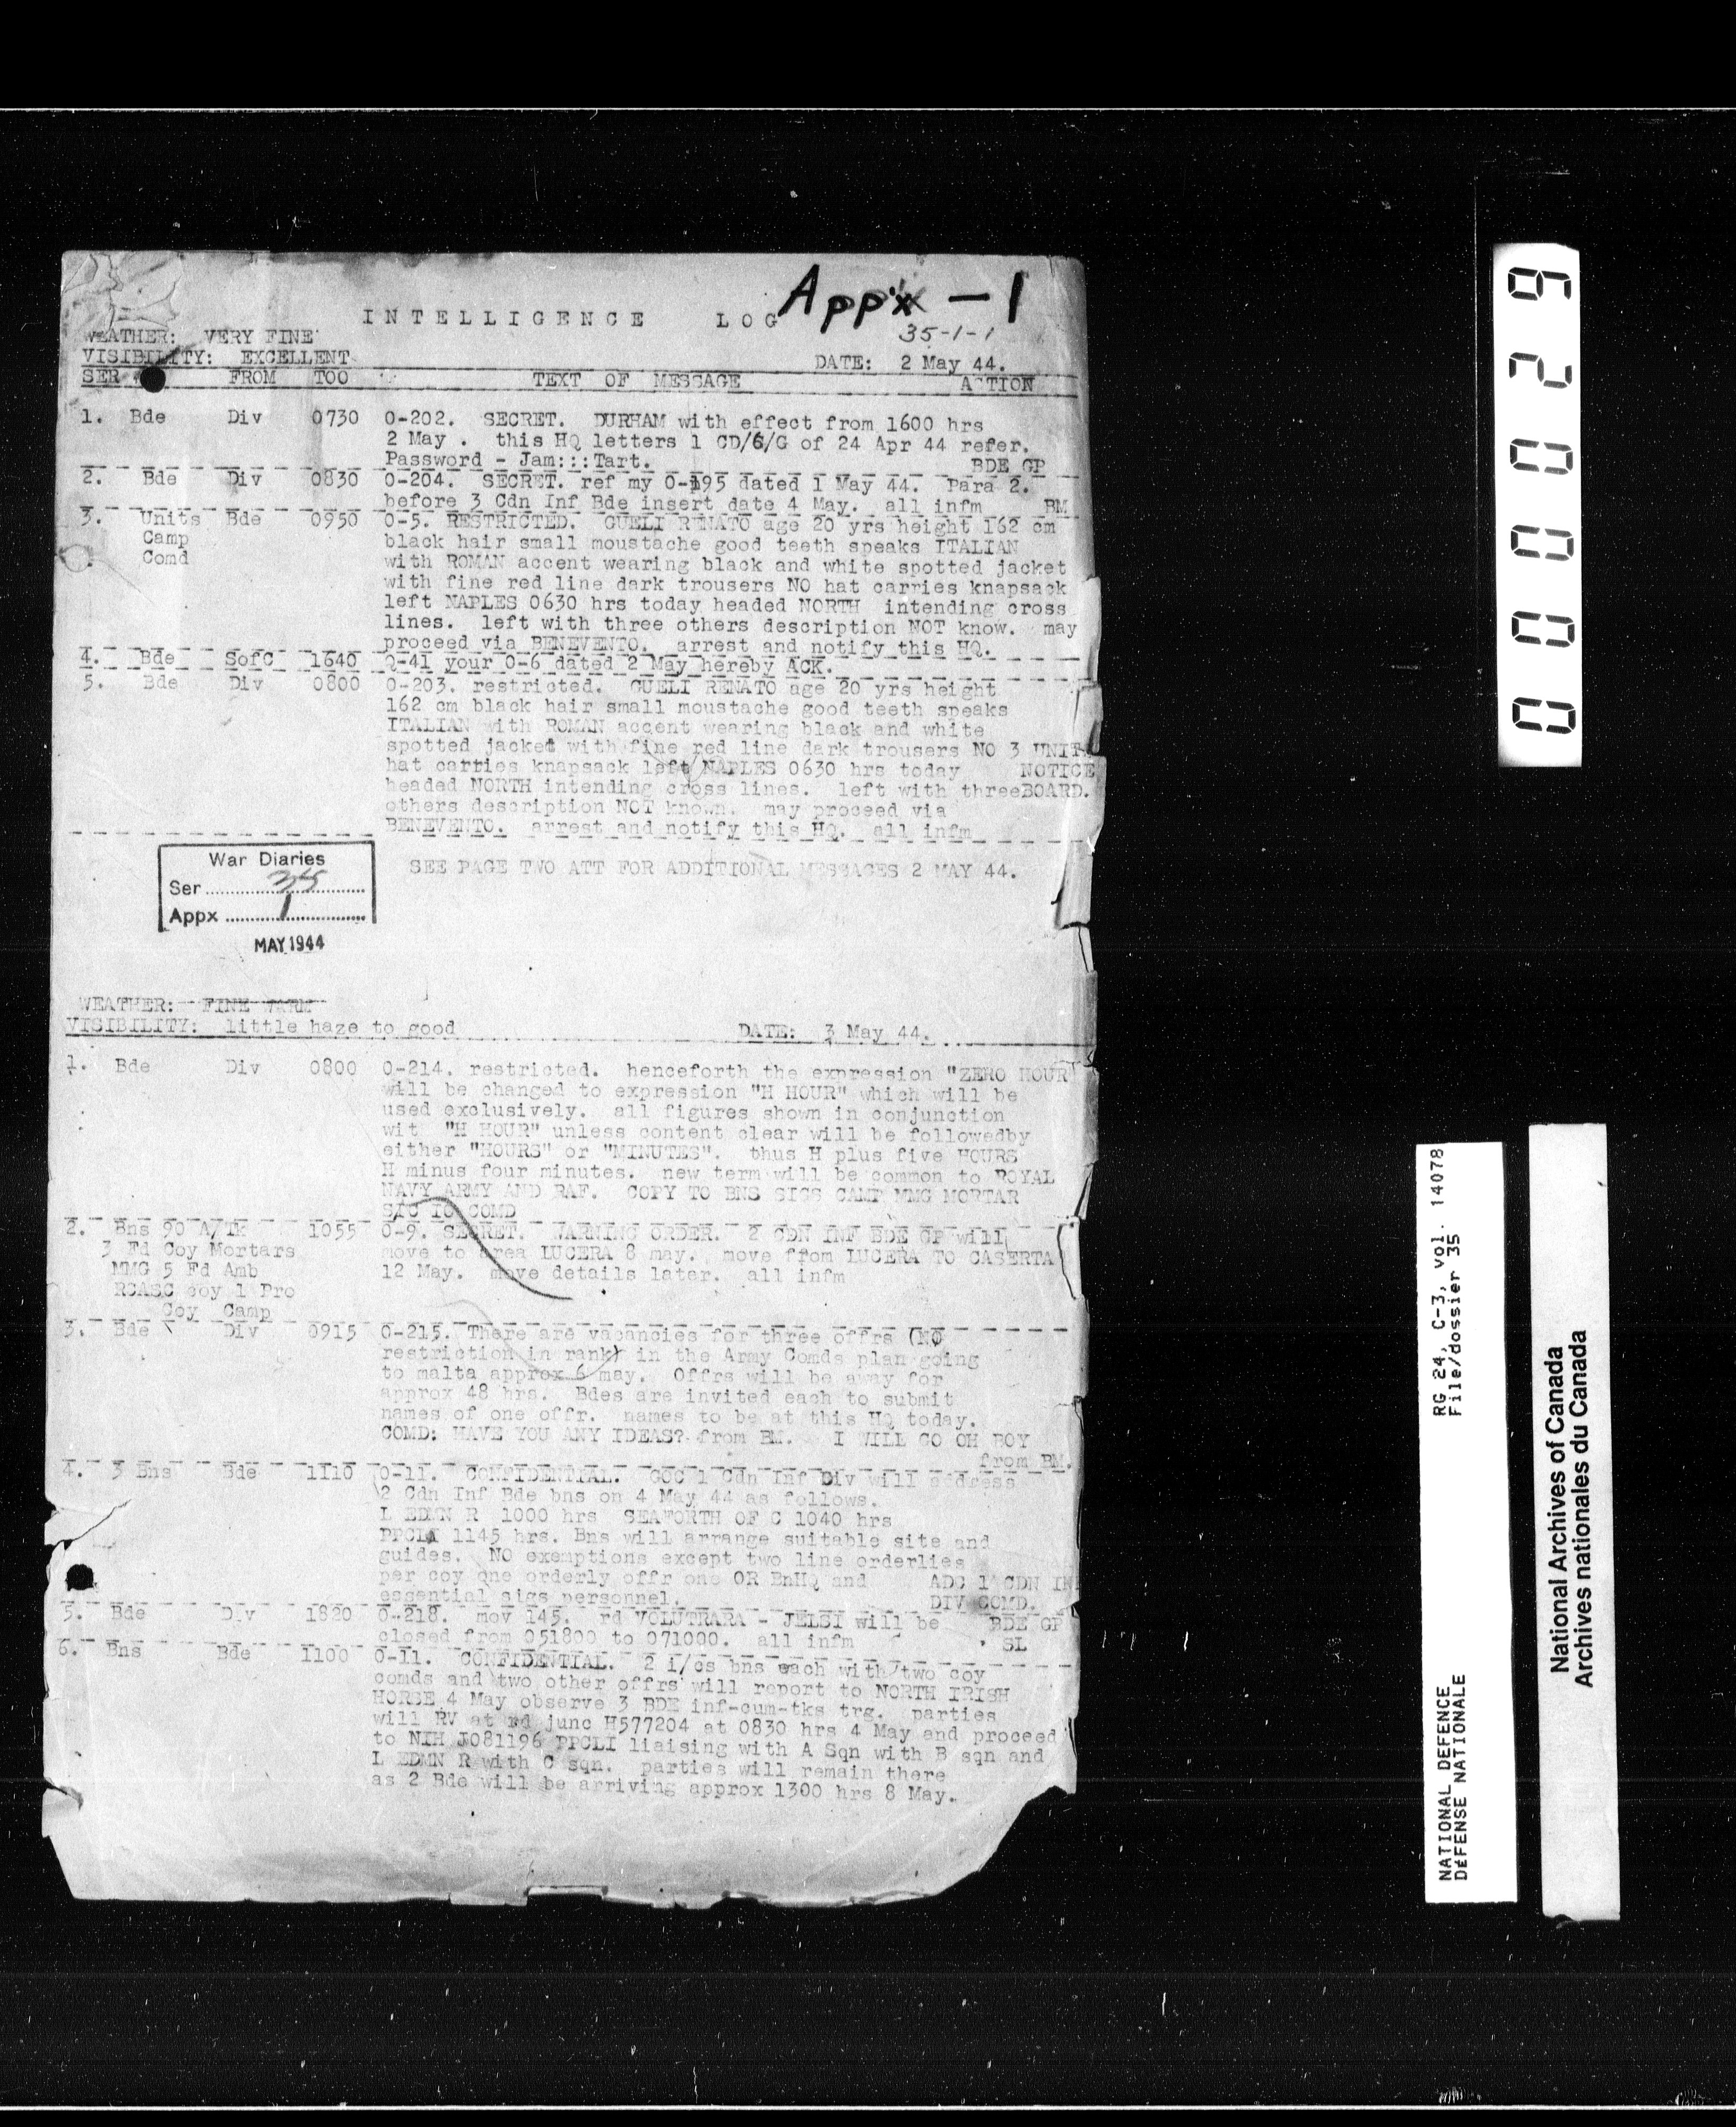 Appx - 1
INTELLIGENCE LOG
35-1-1
WEATHER: VERY FINE
VISIBILITY: EXCELLENT DATE: 2 May 44.
SER FROM TOO TEXT OF MESSAGE ACTION
1. Bde Div 0730 O-202. SECRET. DURHAM with effect from 1600 hrs
2 May . this HQ letters 1 CD/6/G of 24 Apr 44 refer.
Password - Jam:::Tart. BDE GP
2. Bde Div 0830 O-204. SECRET. ref my O-195 dated 1 May 44. Para 2.
before 3 Cdn Inf Bde insert date 4 May. all infm BM
3. Units Bde 0950 O-5. RESTRICTED. GUELI RENATO age 20 yrs height 162 cm
Camp black hair small moustache good teeth speaks ITALIAN
Comd with ROMAN accent wearing black and white spotted jacket
with fine red line dark trousers NO hat carries knapsack
left NAPLES 0630 hrs today headed NORTH intending cross
lines. left with three others description NOT know. may
proceed via BENEVENTO. arrest and notify this HQ.
4. Bde SofC 1640 Q-41 your O-6 dated 2 May hereby ACK.
5. Bde Div 0800 O-203. restricted. GUELI RENATO age 20 yrs height
162 cm black hair small moustache good teeth speaks
ITALIAN with ROMAN accent wearing black and white
spotted jacket with fine red line dark trousers NO 3 UNIT
hat carries knapsack left NAPLES 0630 hrs today NOTICE
headed NORTH intending cross lines. left with three BOARD.
others description NOT known. may proceed via
BENEVENTO. arrest and notify this HQ. all infm
SEE PAGE TWO ATT FOR ADDITIONAL MESSAGES 2 MAY 44.
War Diaries
Ser 35
Appx 1
MAY 1944
WEATHER: FINE WARM
VISIBILITY: little haze to good DATE: 3 May 44.
1. Bde Div 0800 O-214. restricted. henceforth the expression "ZERO HOUR"
will be changed to expression "H HOUR" which will be
used exclusively. all figures shown in conjunction
wit "H HOUR" unless content clear will be followedby
either "HOURS" or "MINUTES". thus H plus five HOURS
H minus four minutes. new term will be common to ROYAL
NAVY ARMY AND RAF. COPY TO BNS SIGS CAMP MMG MORTAR
COMD
2. Bns 90 A/Tk 1055 O-9. SECRET. WARNING ORDER. 2 CDN INF BDE GP will
3 Fd Coy Mortars move to area LUCERA 8 may. move from LUCERA TO CASERTA
MMG 5 Fd Amb 12 May. move details later. all infm
RCASC coy 1 Pro
Coy Camp
3. Bde Div 0915 O-215. There are vacancies for three offrs (NO
restriction in rank) in the Army Comds plan going
to malta approx 6 may. Offrs will be away for
approx 48 hrs. Bdes are invited each to submit
names of one offr. names to be at this HQ today.
COMD: HAVE YOU ANY IDEAS? from BM. I WILL GO OH BOY
from BM.
4. 3 Bns Bde 1110 O-11. CONFIDENTIAL. GOC 1 Cdn Inf Div will address
2 Cdn Inf Bde bns on 4 May 44 as follows.
L EDMN R 1000 hrs SEAFORTH OF C 1040 hrs
PPCLI 1145 hrs. Bns will arrange suitable site and
guides. NO exemptions except two line orderlies
per coy one orderly offr one OR BnHQ and ADC 1 CDN IN
essential sigs personnel. DIV COMD.
5. Bde Div 1820 O-218. mov 145. rd VOLUTRARA - JELSI will be BDE GP
closed from 051800 to 071000. all infm SL
6. Bns Bde 1100 O-11. CONFIDENTIAL. 2 i/cs bns each with two coy
comds and two other offrs will report to NORTH IRISH
HORSE 4 May observe 3 BDE inf-cum-tks trg. parties
will RV at rd junc H577204 at 0830 hrs 4 May and proceed
to NIH J081196 PPCLI liaising with A Sqn with B sqn and
L EDMN R with C sqn. parties will remain there
as 2 Bde will be arriving approx 1300 hrs 8 May.
000029
RG 24, C-3, vol. 14078
File/dossier 35
NATIONAL DEFENCE
DÉFENSE NATIONALE
National Archives of Canada
Archives nationales du Canada